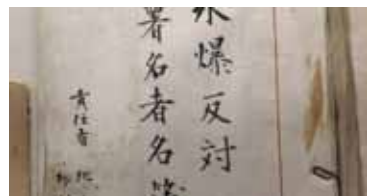 水爆反対
署名者名簿
責任者